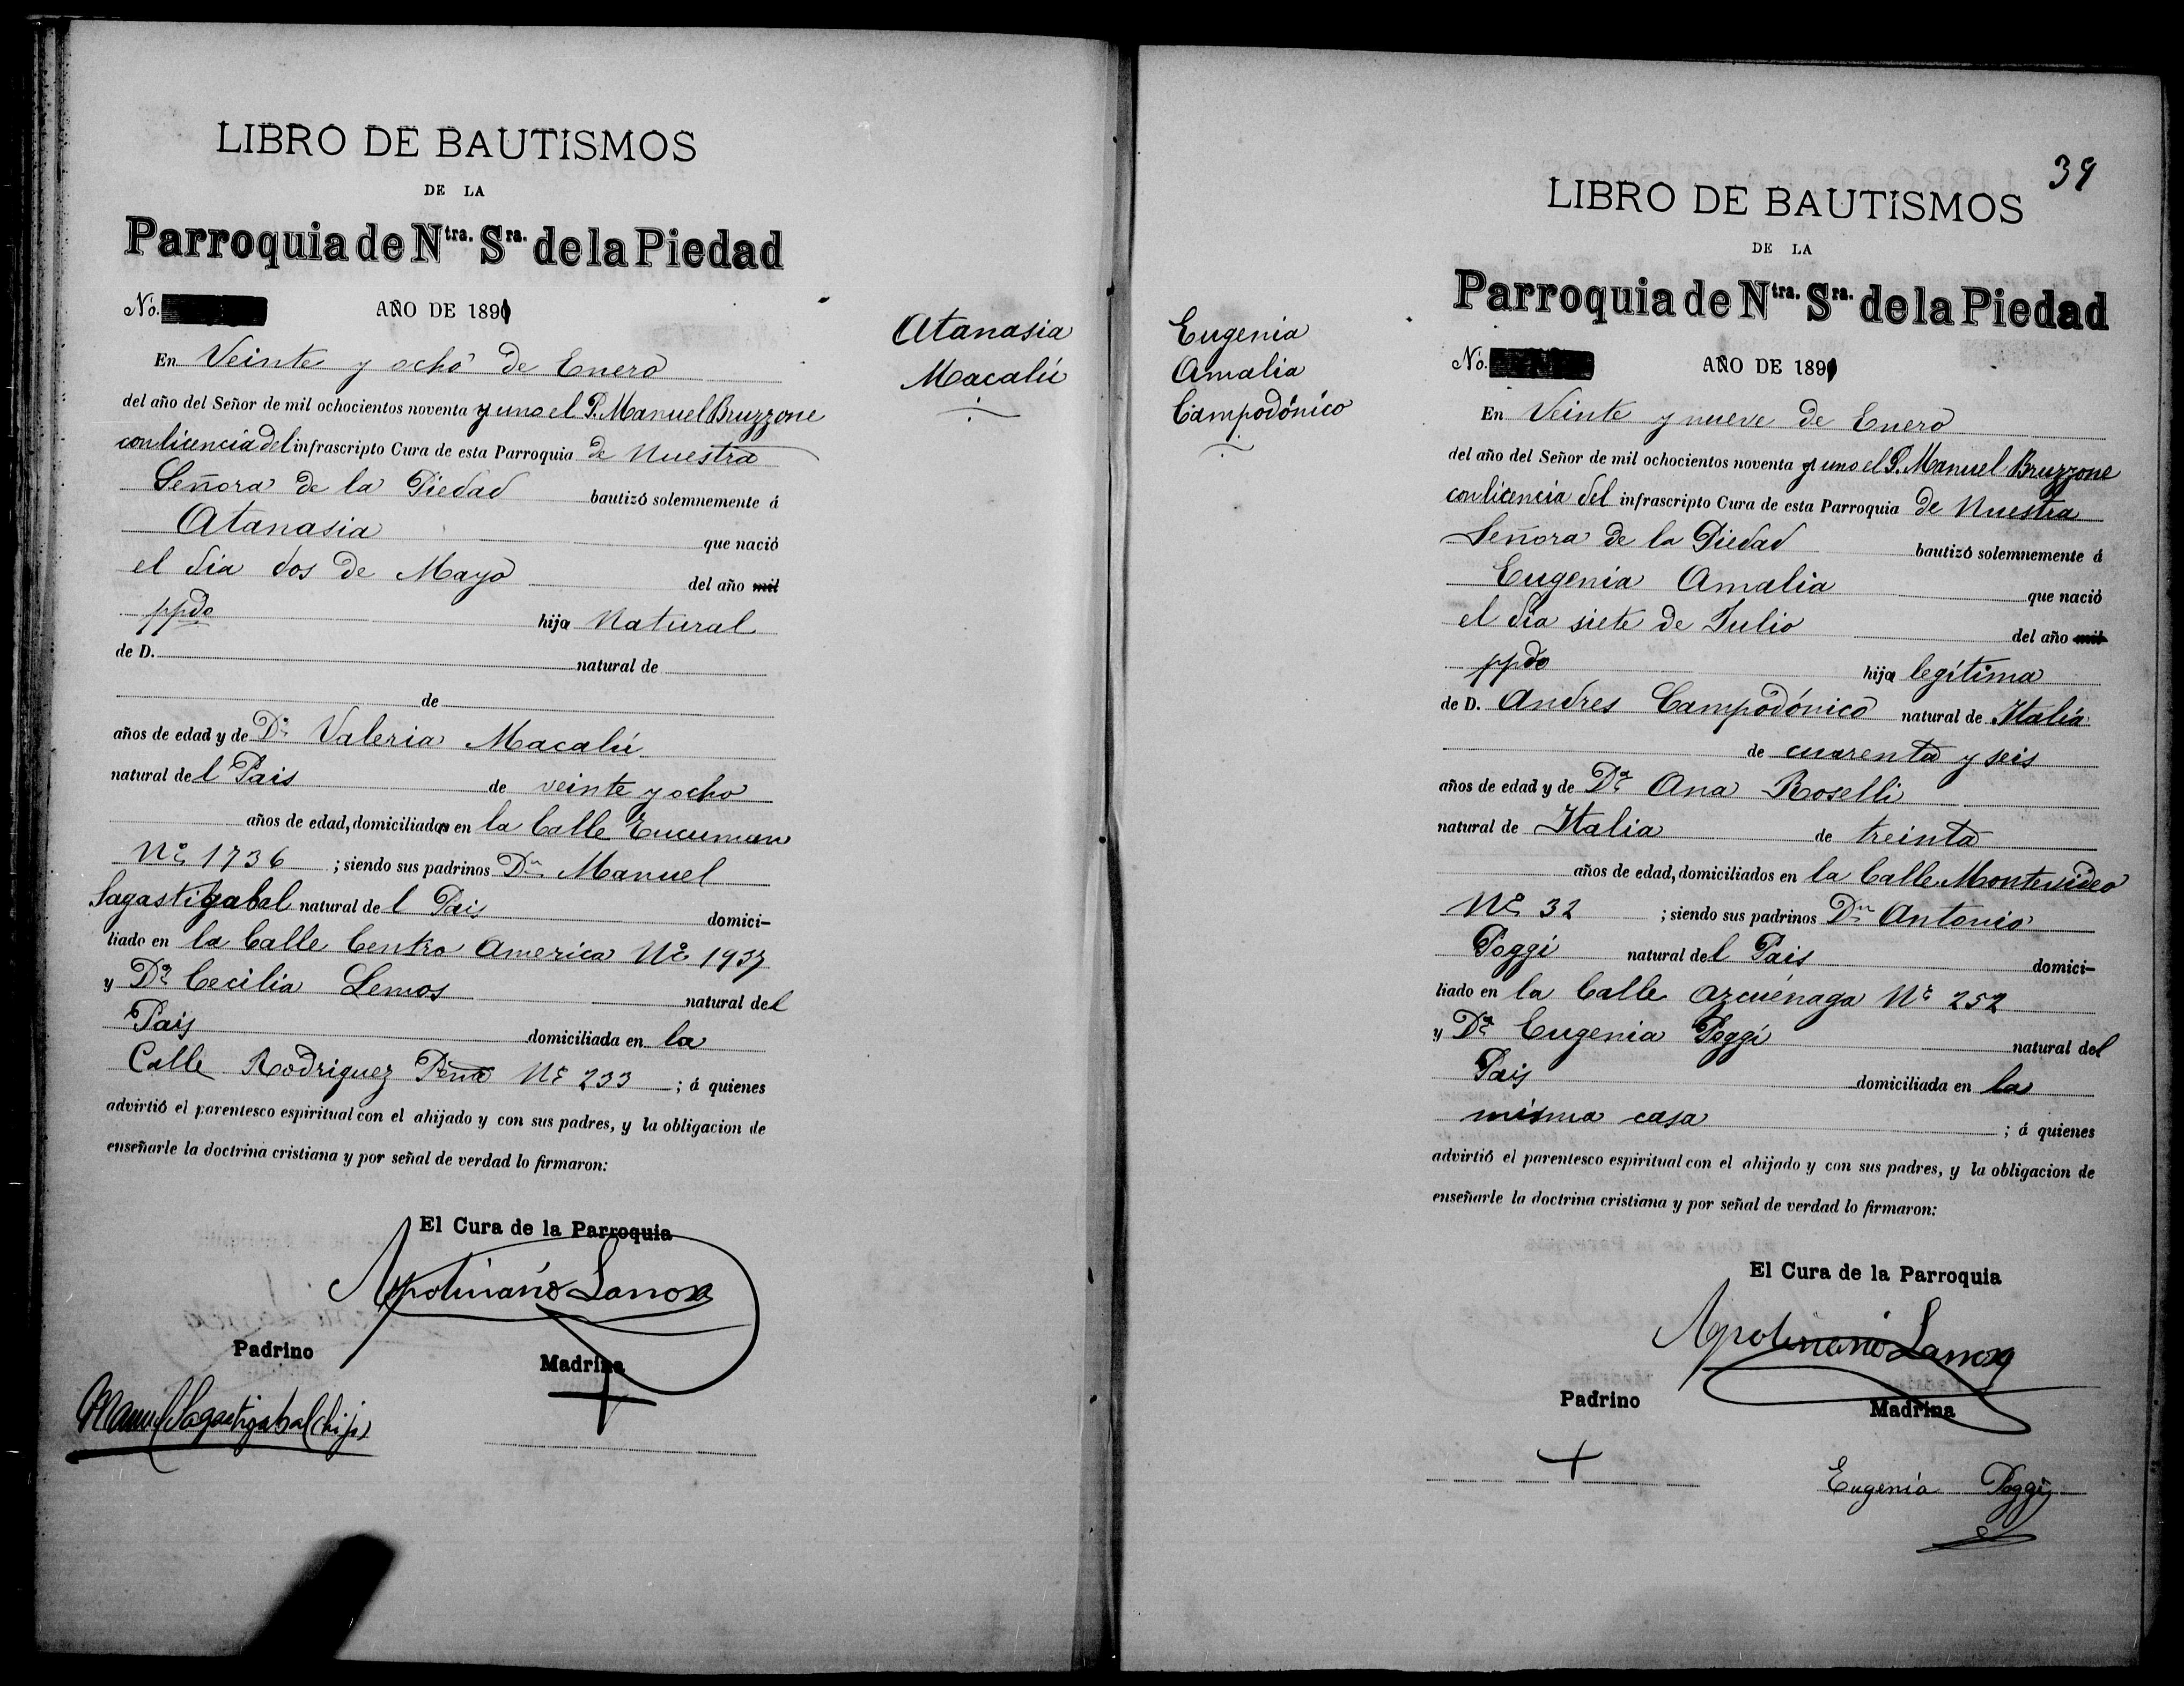 LIBRO DE BAUTISMOS
DE LA
Parroquia de Ntra. Sra. de la Piedad
No. AÑO DE 1891
En Veinte y ocho de Enero
del año del Señor de mil ochocientos noventa y uno el P. Manuel Bruzzone
con licencia del infrascripto Cura de esta Parroquia de Nuestra
Señora de la Piedad bautizó solemnemente á
Atanasia que nació
el dia dos de Mayo del año mil
ppdo hija Natural
de D. natural de
de
años de edad y de Da Valeria Macalú
natural del Pais de veinte y ocho
años de edad, domiciliados en la Calle Tucuman
No 1736 ; siendo sus padrinos Dn Manuel
Sagastizabal natural del Pais domici-
liado en la Calle Centro America No 1937
y Da Cecilia Lemos natural del
Pais domiciliada en la
Calle Rodriguez Peña No 233 ; á quienes
advirtió el parentesco espiritual con el ahijado y con sus padres, y la obligacion de
enseñarle la doctrina cristiana y por señal de verdad lo firmaron:
El Cura de la Parroquia
Apolinario
Padrino Madrina
Manuel Sagastizabal (hijo)
Atanasia
Macalú
39
LIBRO DE BAUTISMOS
DE LA
Parroquia de Ntra. Sra. de la Piedad
Eugenia
Amalia
Campodónico
No. AÑO DE 1891
En Veinte y nueve de Enero
del año del Señor de mil ochocientos noventa y uno el P. Manuel Bruzzone
con licencia del infrascripto Cura de esta Parroquia de Nuestra
Señora de la Piedad bautizó solemnemente á
Eugenia Amalia que nació
el dia siete de Julio del año mil
ppdo hija legítima
de D. Andres Campodónico natural de Italia
de cuarenta y seis
años de edad y de Da Ana Roselli
natural de Italia de treinta
años de edad, domiciliados en la Calle Montevideo
No 32 ; siendo sus padrinos Dn Antonio
Poggi natural del Pais domici-
liado en la Calle Azcuénaga No 252
y Da Eugenia Poggi natural del
Pais domiciliada en la
misma casa ; á quienes
advirtió el parentesco espiritual con el ahijado y con sus padres, y la obligacion de
enseñarle la doctrina cristiana y por señal de verdad lo firmaron:
El Cura de la Parroquia
Apolinario
Padrino Madrina
Eugenia Poggi